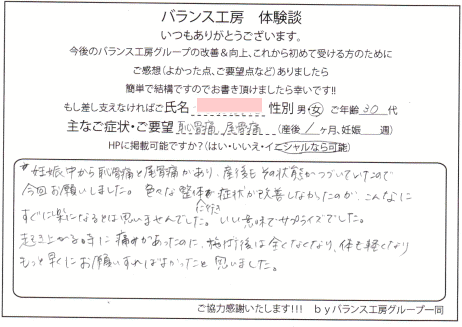 バランス工房　体験談
いつもありがとうございます。
今後のバランス工房グループの改善＆向上、これから初めて受ける方のために
ご感想（よかった点、ご要望点など）ありましたら
簡単で結構ですのでお書き頂けましたら幸いです!!
もし差し支えなければご氏名　性別 男・女　ご年齢 30 代
主なご症状・ご要望 恥骨痛 尾骨痛（産後 1 ヶ月、妊娠　週）
HPに掲載可能ですか？（はい・いいえ・イニシャルなら可能）
妊娠中から恥骨痛と尾骨痛があり、産後もその状態がつづいていたので
今回お願いしました。色々な整体に行き症状が改善しなかったのが、こんなに
すぐに楽になるとは思いませんでした。いい意味でサプライズでした。
起き上がる時に痛みがあったのに、施術後は全くなくなり、体も軽くなり
もっと早くにお願いすればよかったと思いました。
ご協力感謝いたします!!!　ｂｙバランス工房グループ一同